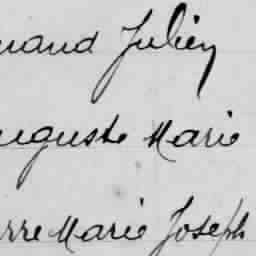 nand Julien
uguste Marie
rre Marie Joseph